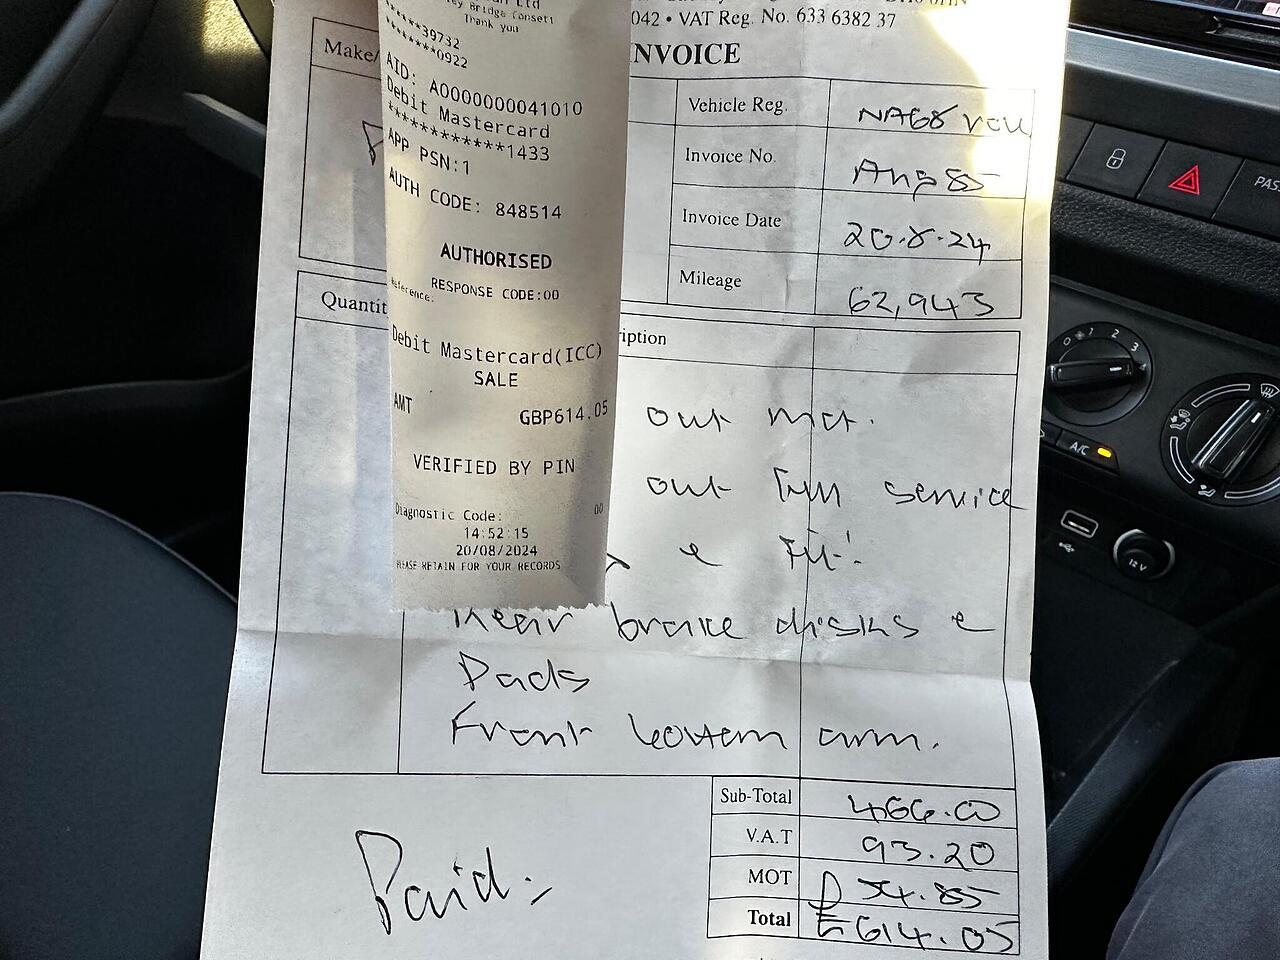 Ltd
ey Bridge Consett
Thank you
******39732
*******0922
AID: A0000000041010
Debit Mastercard
************1433
APP PSN:1
AUTH CODE: 848514
AUTHORISED
RESPONSE CODE:00
Reference:
Debit Mastercard(ICC)
SALE
AMT GBP614.05
VERIFIED BY PIN
Diagnostic Code: 00
14:52:15
20/08/2024
PLEASE RETAIN FOR YOUR RECORDS
042 • VAT Reg. No. 633 6382 37
INVOICE
Make/
Vehicle Reg. NA68 VCU
Invoice No. Aug 85
Invoice Date 20.8.24
Mileage 62,943
Quantit
ription
out mot.
out Full service
e Fit:
Rear brake disks e
Pads
Front bottom arm.
Sub-Total 466.00
V.A.T 93.20
MOT £ 54.85
Total £614.05
Paid:
PAS
0 1 2 3
A/C
12V